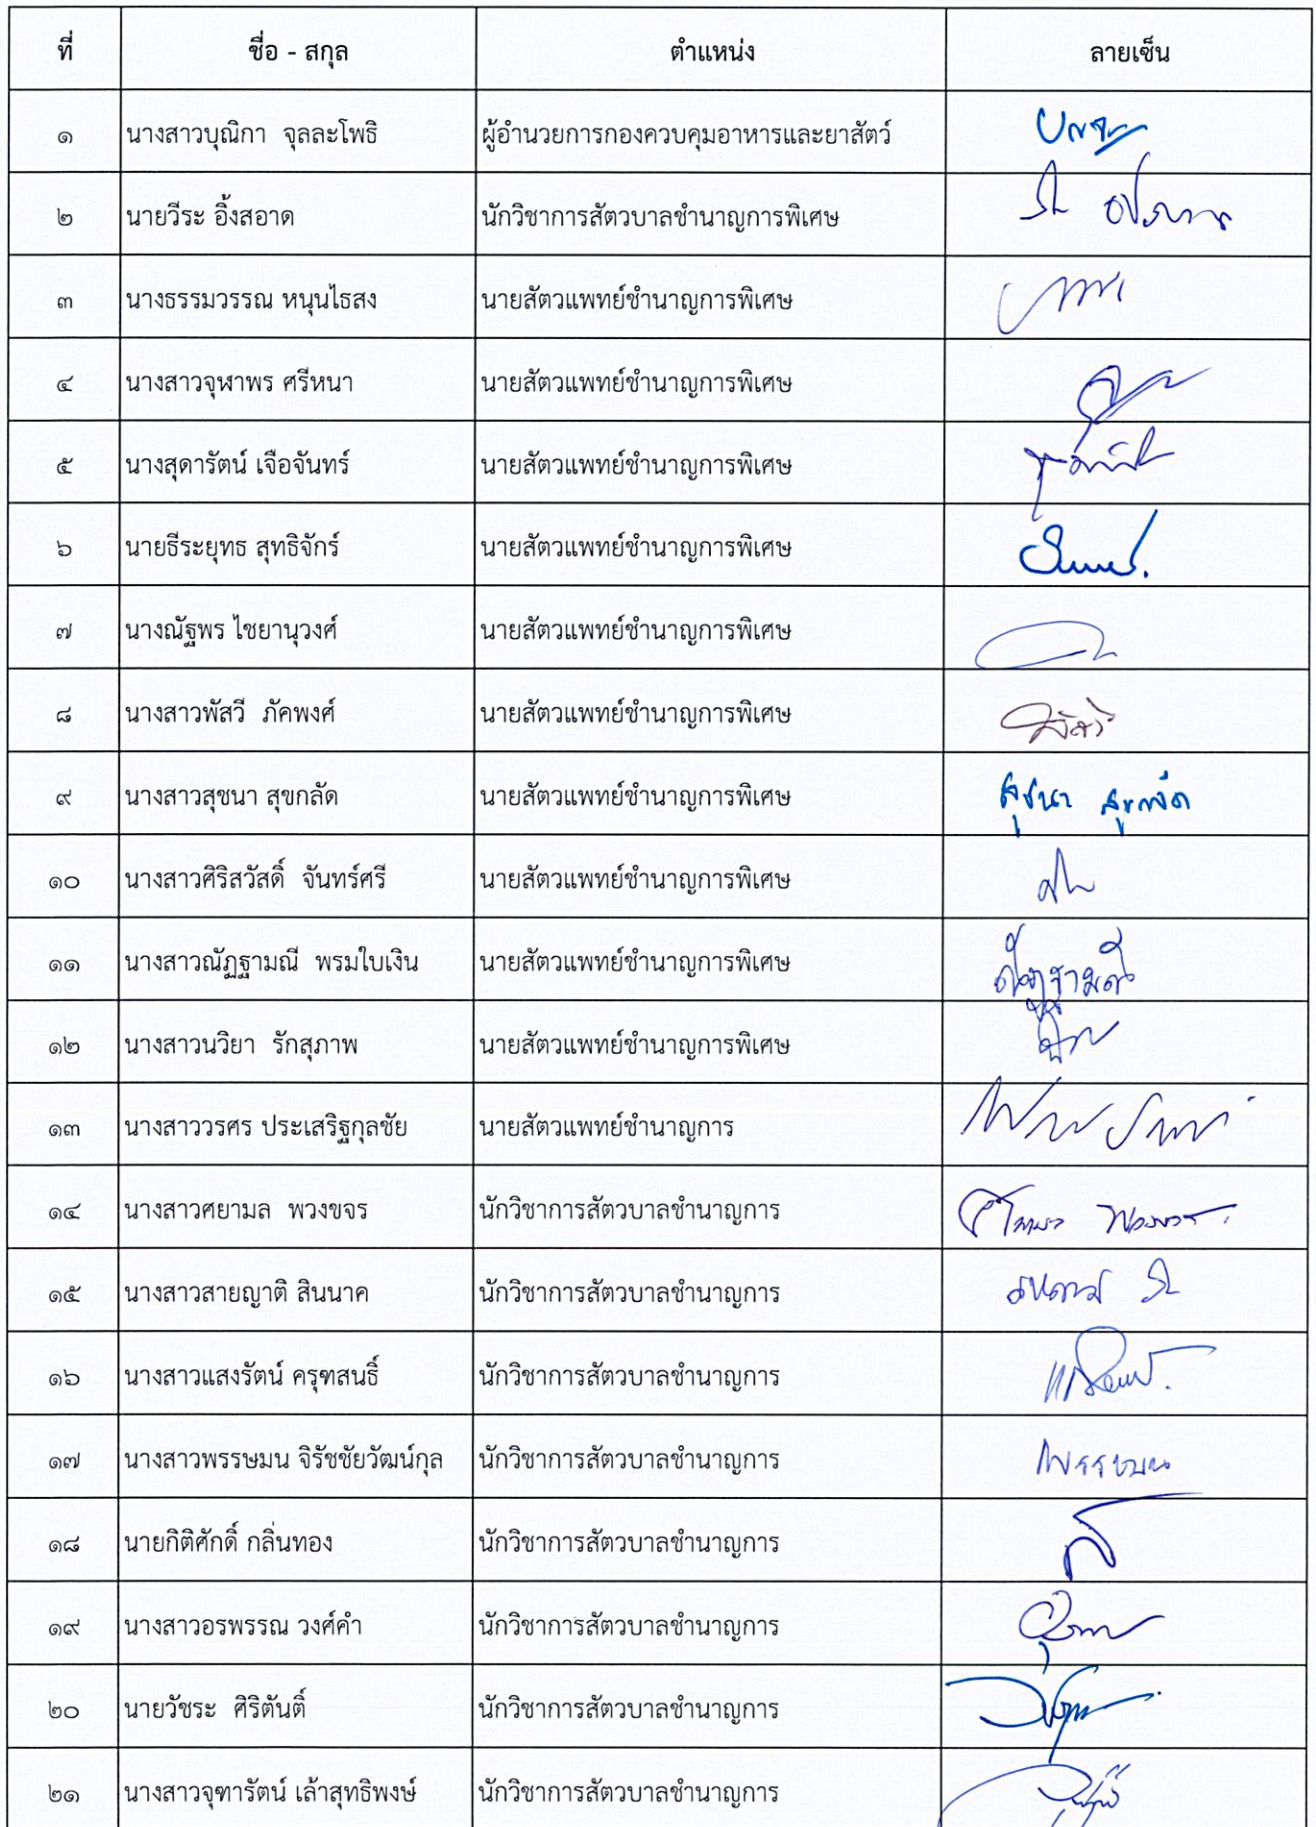 ที่ ชื่อ - สกุล ตำแหน่ง ลายเซ็น
๑ นางสาวบุณิกา จุลละโพธิ ผู้อำนวยการกองควบคุมอาหารและยาสัตว์
๒ นายวีระ อิ้งสอาด นักวิชาการสัตวบาลชำนาญการพิเศษ
๓ นางธรรมวรรณ หนุนไธสง นายสัตวแพทย์ชำนาญการพิเศษ
๔ นางสาวจุฬาพร ศรีหนา นายสัตวแพทย์ชำนาญการพิเศษ
๕ นางสุดารัตน์ เจือจันทร์ นายสัตวแพทย์ชำนาญการพิเศษ
๖ นายธีระยุทธ สุทธิจักร์ นายสัตวแพทย์ชำนาญการพิเศษ
๗ นางณัฐพร ไชยานุวงศ์ นายสัตวแพทย์ชำนาญการพิเศษ
๘ นางสาวพัสวี ภัคพงศ์ นายสัตวแพทย์ชำนาญการพิเศษ พัสวี
๙ นางสาวสุชนา สุขกลัด นายสัตวแพทย์ชำนาญการพิเศษ สุชนา สุขกลัด
๑๐ นางสาวศิริสวัสดิ์ จันทร์ศรี นายสัตวแพทย์ชำนาญการพิเศษ
๑๑ นางสาวณัฏฐามณี พรมใบเงิน นายสัตวแพทย์ชำนาญการพิเศษ ณัฏฐามณี
๑๒ นางสาวนวิยา รักสุภาพ นายสัตวแพทย์ชำนาญการพิเศษ
๑๓ นางสาววรศร ประเสริฐกุลชัย นายสัตวแพทย์ชำนาญการ
๑๔ นางสาวศยามล พวงขจร นักวิชาการสัตวบาลชำนาญการ ศยามล พวงขจร
๑๕ นางสาวสายญาติ สินนาค นักวิชาการสัตวบาลชำนาญการ
๑๖ นางสาวแสงรัตน์ ครุฑสนธิ์ นักวิชาการสัตวบาลชำนาญการ
๑๗ นางสาวพรรษมน จิรัชชัยวัฒน์กุล นักวิชาการสัตวบาลชำนาญการ พรรษมน
๑๘ นายกิติศักดิ์ กลิ่นทอง นักวิชาการสัตวบาลชำนาญการ
๑๙ นางสาวอรพรรณ วงศ์คำ นักวิชาการสัตวบาลชำนาญการ
๒๐ นายวัชระ ศิริตันติ์ นักวิชาการสัตวบาลชำนาญการ
๒๑ นางสาวจุฑารัตน์ เล้าสุทธิพงษ์ นักวิชาการสัตวบาลชำนาญการ